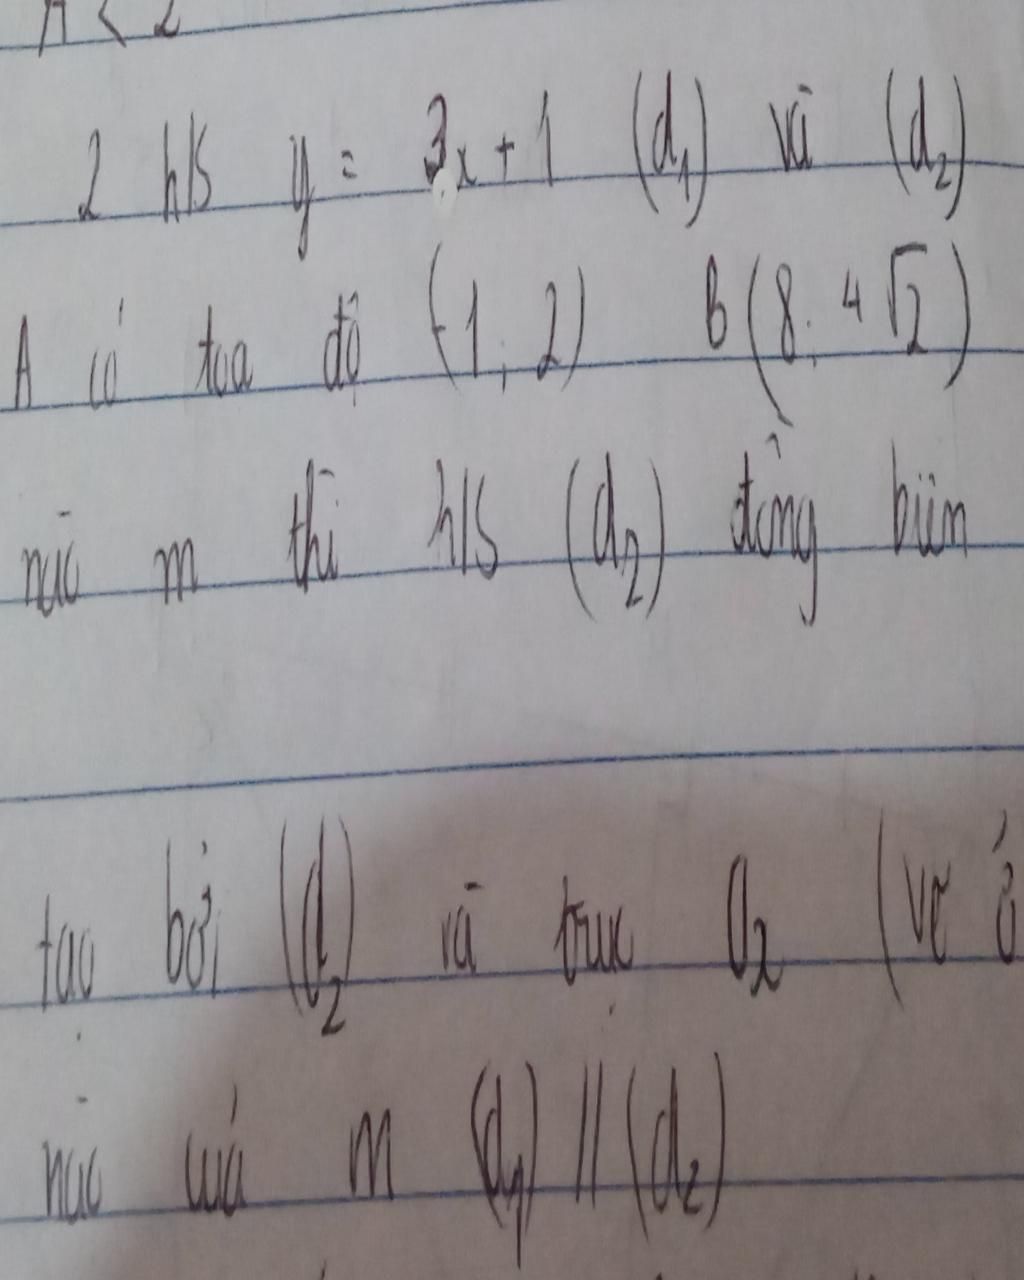 A < 2
2 h/s y = 3x + 1 (d1) và (d2)
A có tọa độ (-1; 2) B(8; 4√2)
nào m thì h/s (d2) đồng biến
tạo bởi (d2) và trục Ox (vẽ ở
nào của m (d1) // (d2)